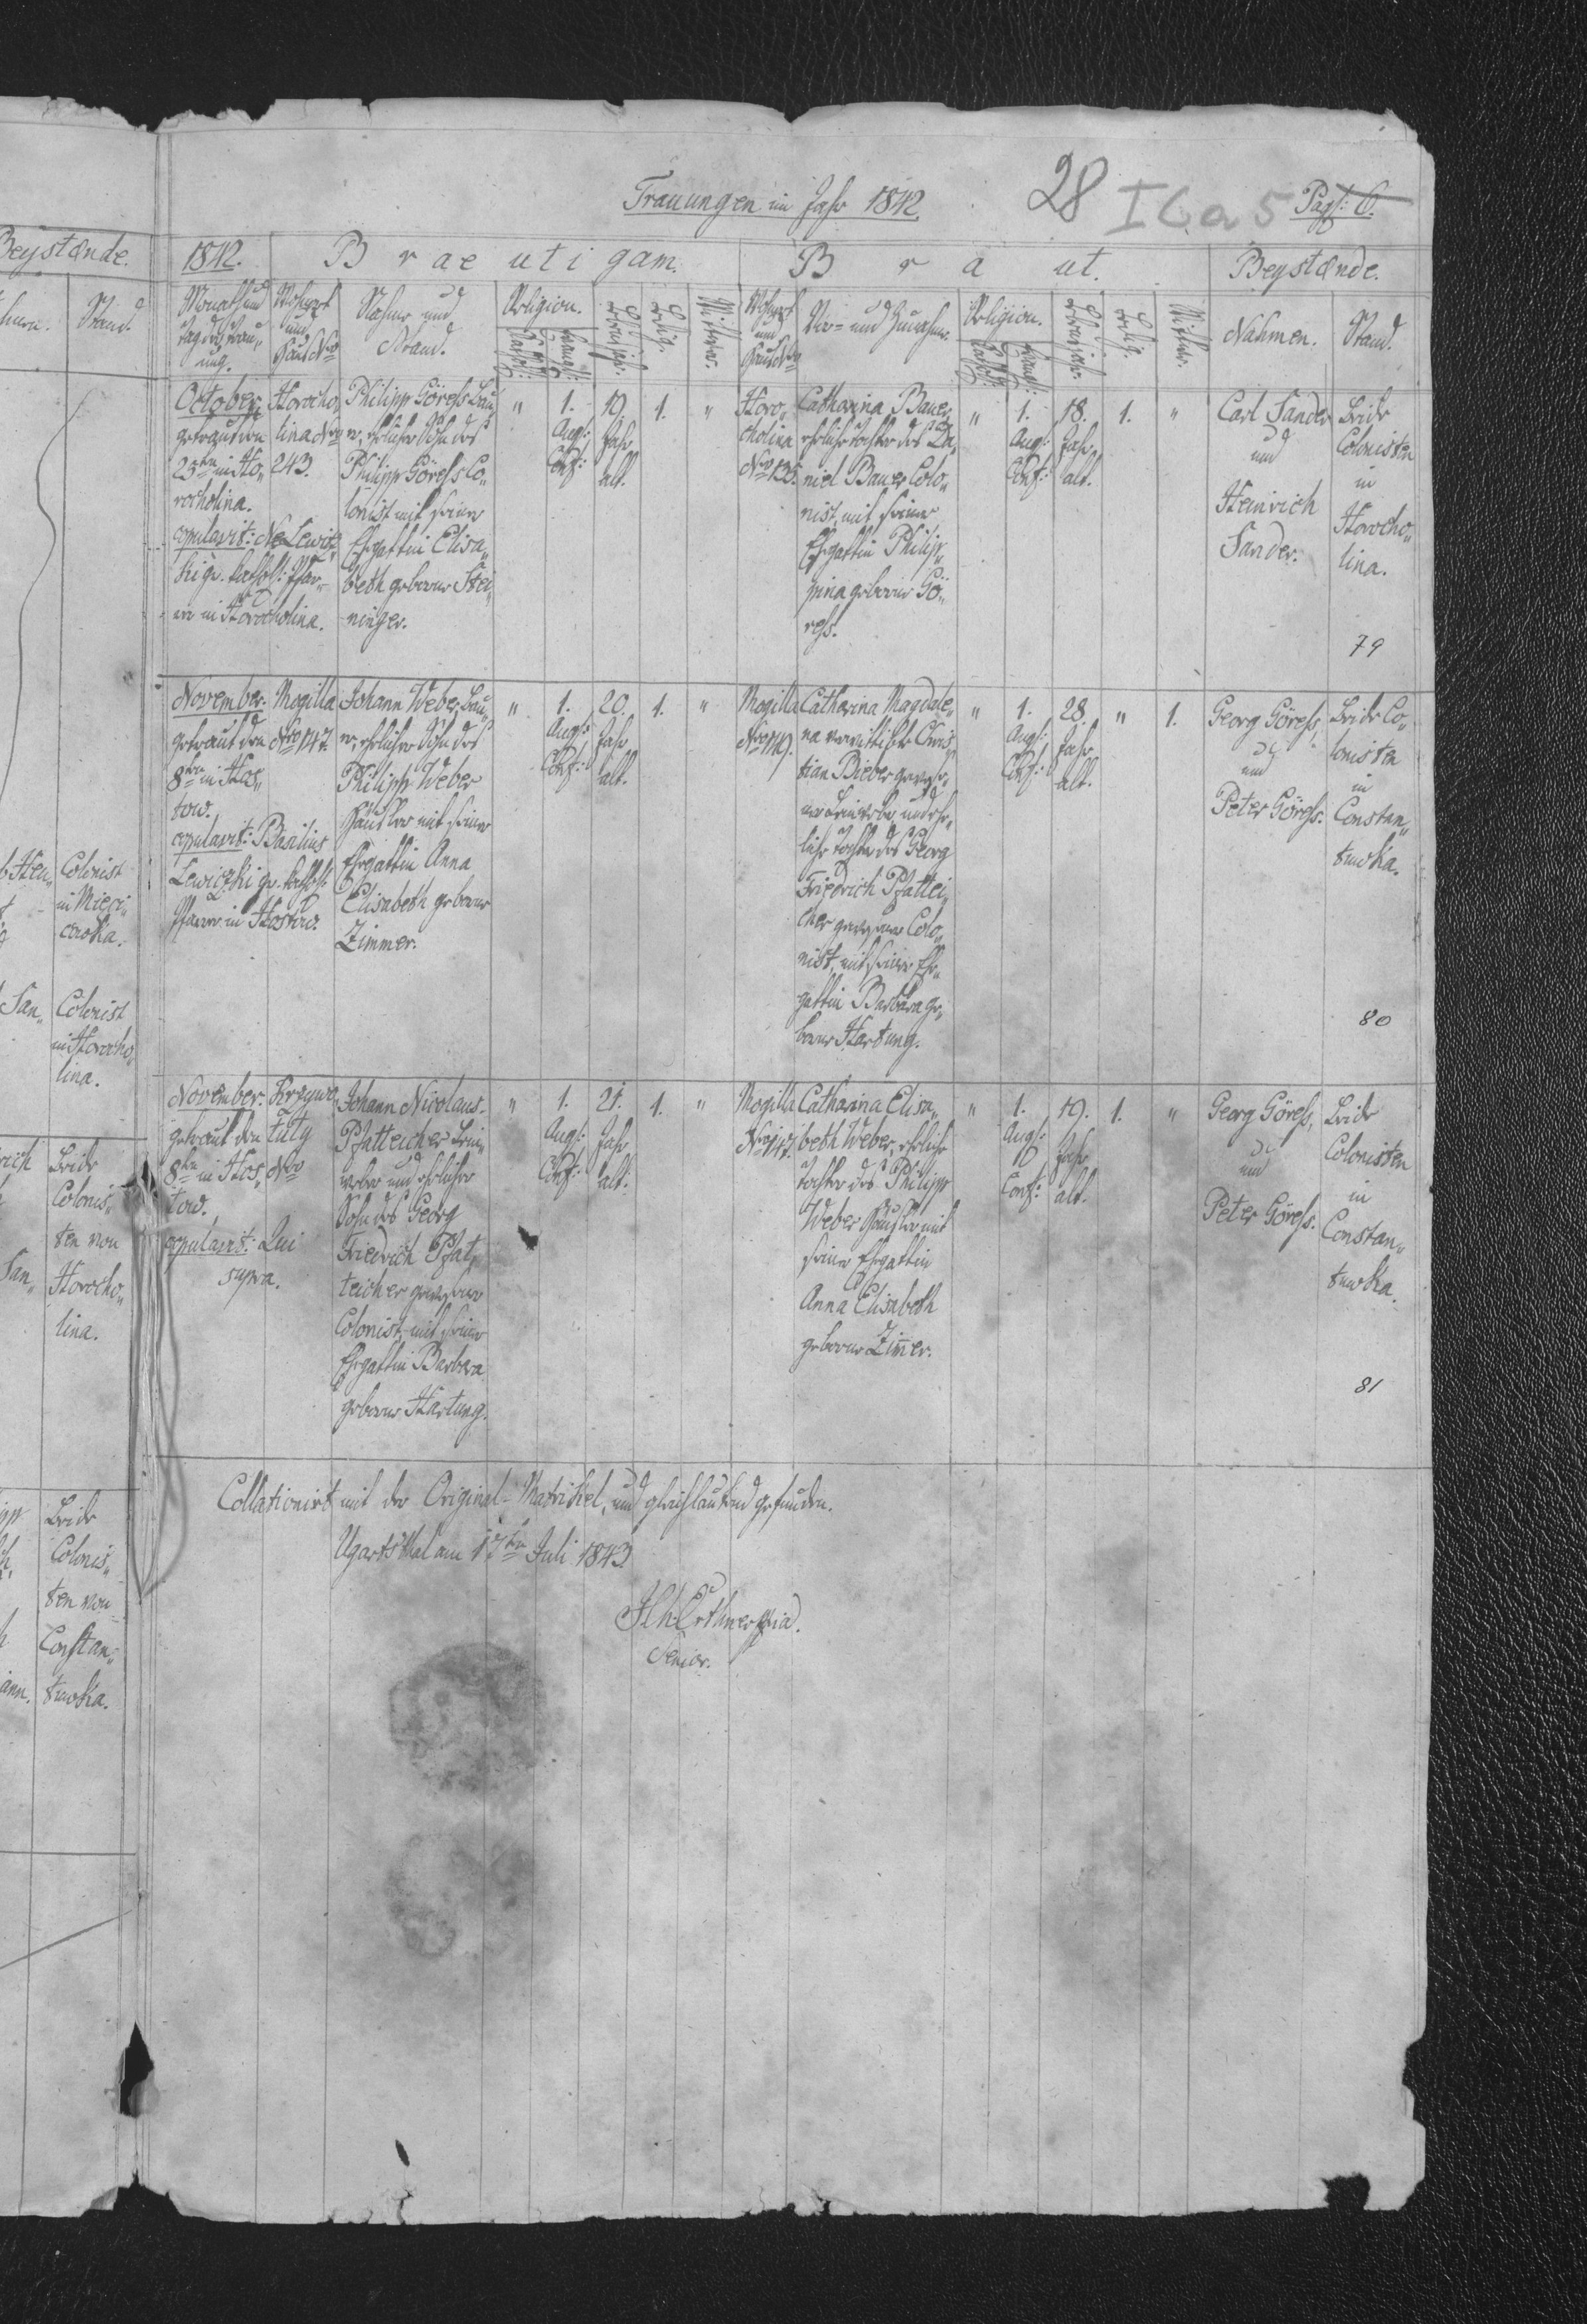 Trauungen im Jahr 1842.
28 I C a 5 Pag: 6.
Beystænde.
Stand.
1842.
Braeutigam.
Braut.
Beystænde.
Monath und
Tag der Trau„
ung.
Wohnort
und
Haus Nro
Nahme und
Stand.
Religion.
Kathol:
Evangl:
Lebensjahr.
Ledig.
Wittwer.
Wohnort
und
Haus Nro
Vor- und Zunahme.
Religion.
Kathol:
Evangl:
Lebensjahr.
Ledig.
Wittwe.
Nahmen.
Stand.
October
getraut den
23ten in Ho„
rocholina.
copulavit: Lewicz
ki gr. kathol: Pfar„
rer in Horocholina.
Horocho„
lina Nro
243.
Philipp Göress Bau„
er, ehelicher Sohn des
Philipp Göress Co„
lonist mit seiner
Ehegattin Elisa„
beth geborne Stei„
ninger.
„
1.
Augs:
Conf:
19.
Jahr
alt.
1.
„
Horo„
cholina
Nro 135.
Catharina Bauer,
eheliche Tochter des Da„
niel Bauer Colo„
nist, mit seiner
Ehegattin Philip„
pina geborne Gö„
ress.
„
1.
Augs:
Conf:
18.
Jahr
alt.
1.
„
Carl Sander
und
Heinrich
Sander.
Beide
Colonisten
in
Horocho„
lina.
79
November.
getraut den
8ten in Hos„
tow.
copulavit: Basilius
Lewiczki gr. kathol:
Pfarrer in Hostow.
Mogilla
Nro 147.
Johann Weber, Bau„
er, ehelicher Sohn des
Philipp Weber
Häusler mit seiner
Ehegattin Anna
Elisabeth geborne
Zimmer.
„
1.
Augs:
Conf:
20.
Jahr
alt.
1.
„
Mogilla
Nro 149.
Catharina Magdale„
na verwittibte Chris„
tian Bieber gewese„
ner Leinweber, und ehe„
liche Tochter des Georg
Friedrich Pfattei„
cher gewesener Colo„
nist, mit seiner Ehe„
gattin Barbara ge„
borne Hartung.
„
1.
Augs:
Conf:
28.
Jahr
alt.
„
1.
Georg Göress,
und
Peter Göress.
Beide Co„
lonisten
in
Constan„
tuwka.
80
November.
getraut den
8ten in Hos„
tow.
copulavit: Qui
supra.
Krzywo„
tuly
Nro
Johann Nicolaus
Pfatteicher Lein„
weber und ehelicher
Sohn des Georg
Friedrich Pfat„
teicher gewesener
Colonist, mit seiner
Ehegattin Barbara
geborne Hartung.
„
1.
Augs:
Conf:
21.
Jahr
alt.
1.
„
Mogilla
Nro 147.
Catharina Elisa„
beth Weber, eheliche
Tochter des Philipp
Weber Häusler mit
seiner Ehegattin
Anna Elisabeth
geborne Zim̅er.
„
1.
Augs:
Conf:
19.
Jahr
alt.
1.
„
Georg Göress,
und
Peter Göress.
Beide
Colonisten
in
Constan„
tuwka.
81
Collationirt mit der Original-Matrikel, und gleichlautend gefunden.
Ugartsthal am 17ten Juli 1843.
Senior.
Colonist
San„
Colonist
in Horocho„
lina.
Beide
Colonis„
ten von
Horocho„
lina.
San„
Beide
Colonis„
ten von
Constan„
tuwka.